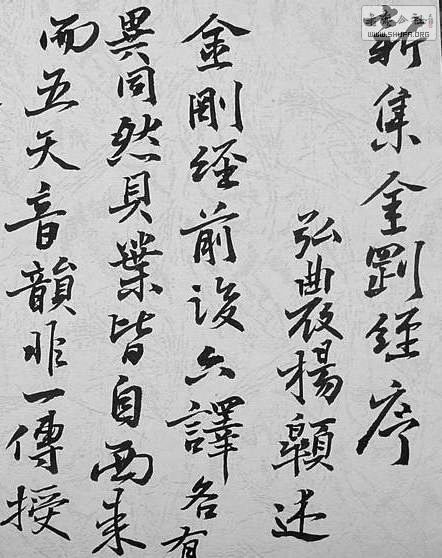 新集金剛經序
弘農楊述
金剛經前後六譯各有
異同然貝葉皆自西来
而五天音韻非一傳授
WWW.SHUFA.ORG